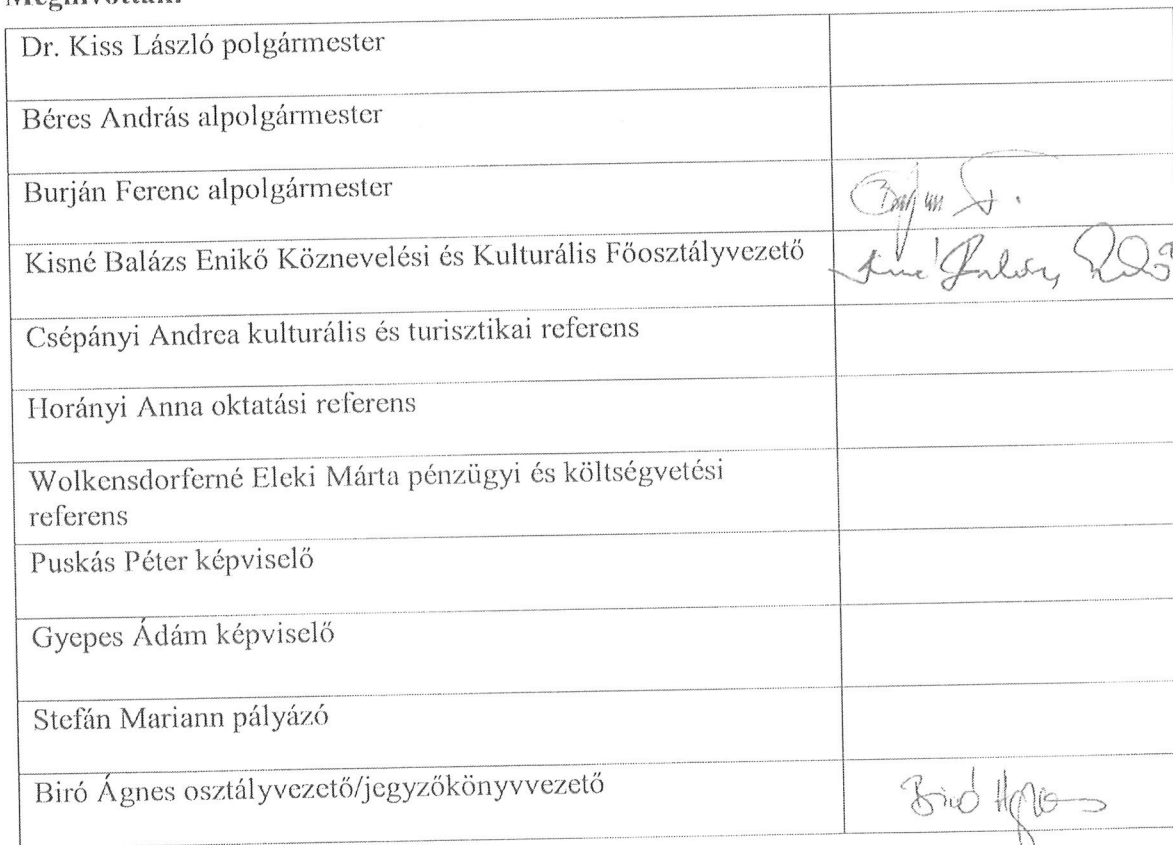 Meghívottak:
Dr. Kiss László polgármester
Béres András alpolgármester
Burján Ferenc alpolgármester
Burján F.
Kisné Balázs Enikő Köznevelési és Kulturális Főosztályvezető
Kisné Balázs Enikő
Csépányi Andrea kulturális és turisztikai referens
Horányi Anna oktatási referens
Wolkensdorferné Eleki Márta pénzügyi és költségvetési
referens
Puskás Péter képviselő
Gyepes Ádám képviselő
Stefán Mariann pályázó
Biró Ágnes osztályvezető/jegyzőkönyvvezető
Biró Ágnes